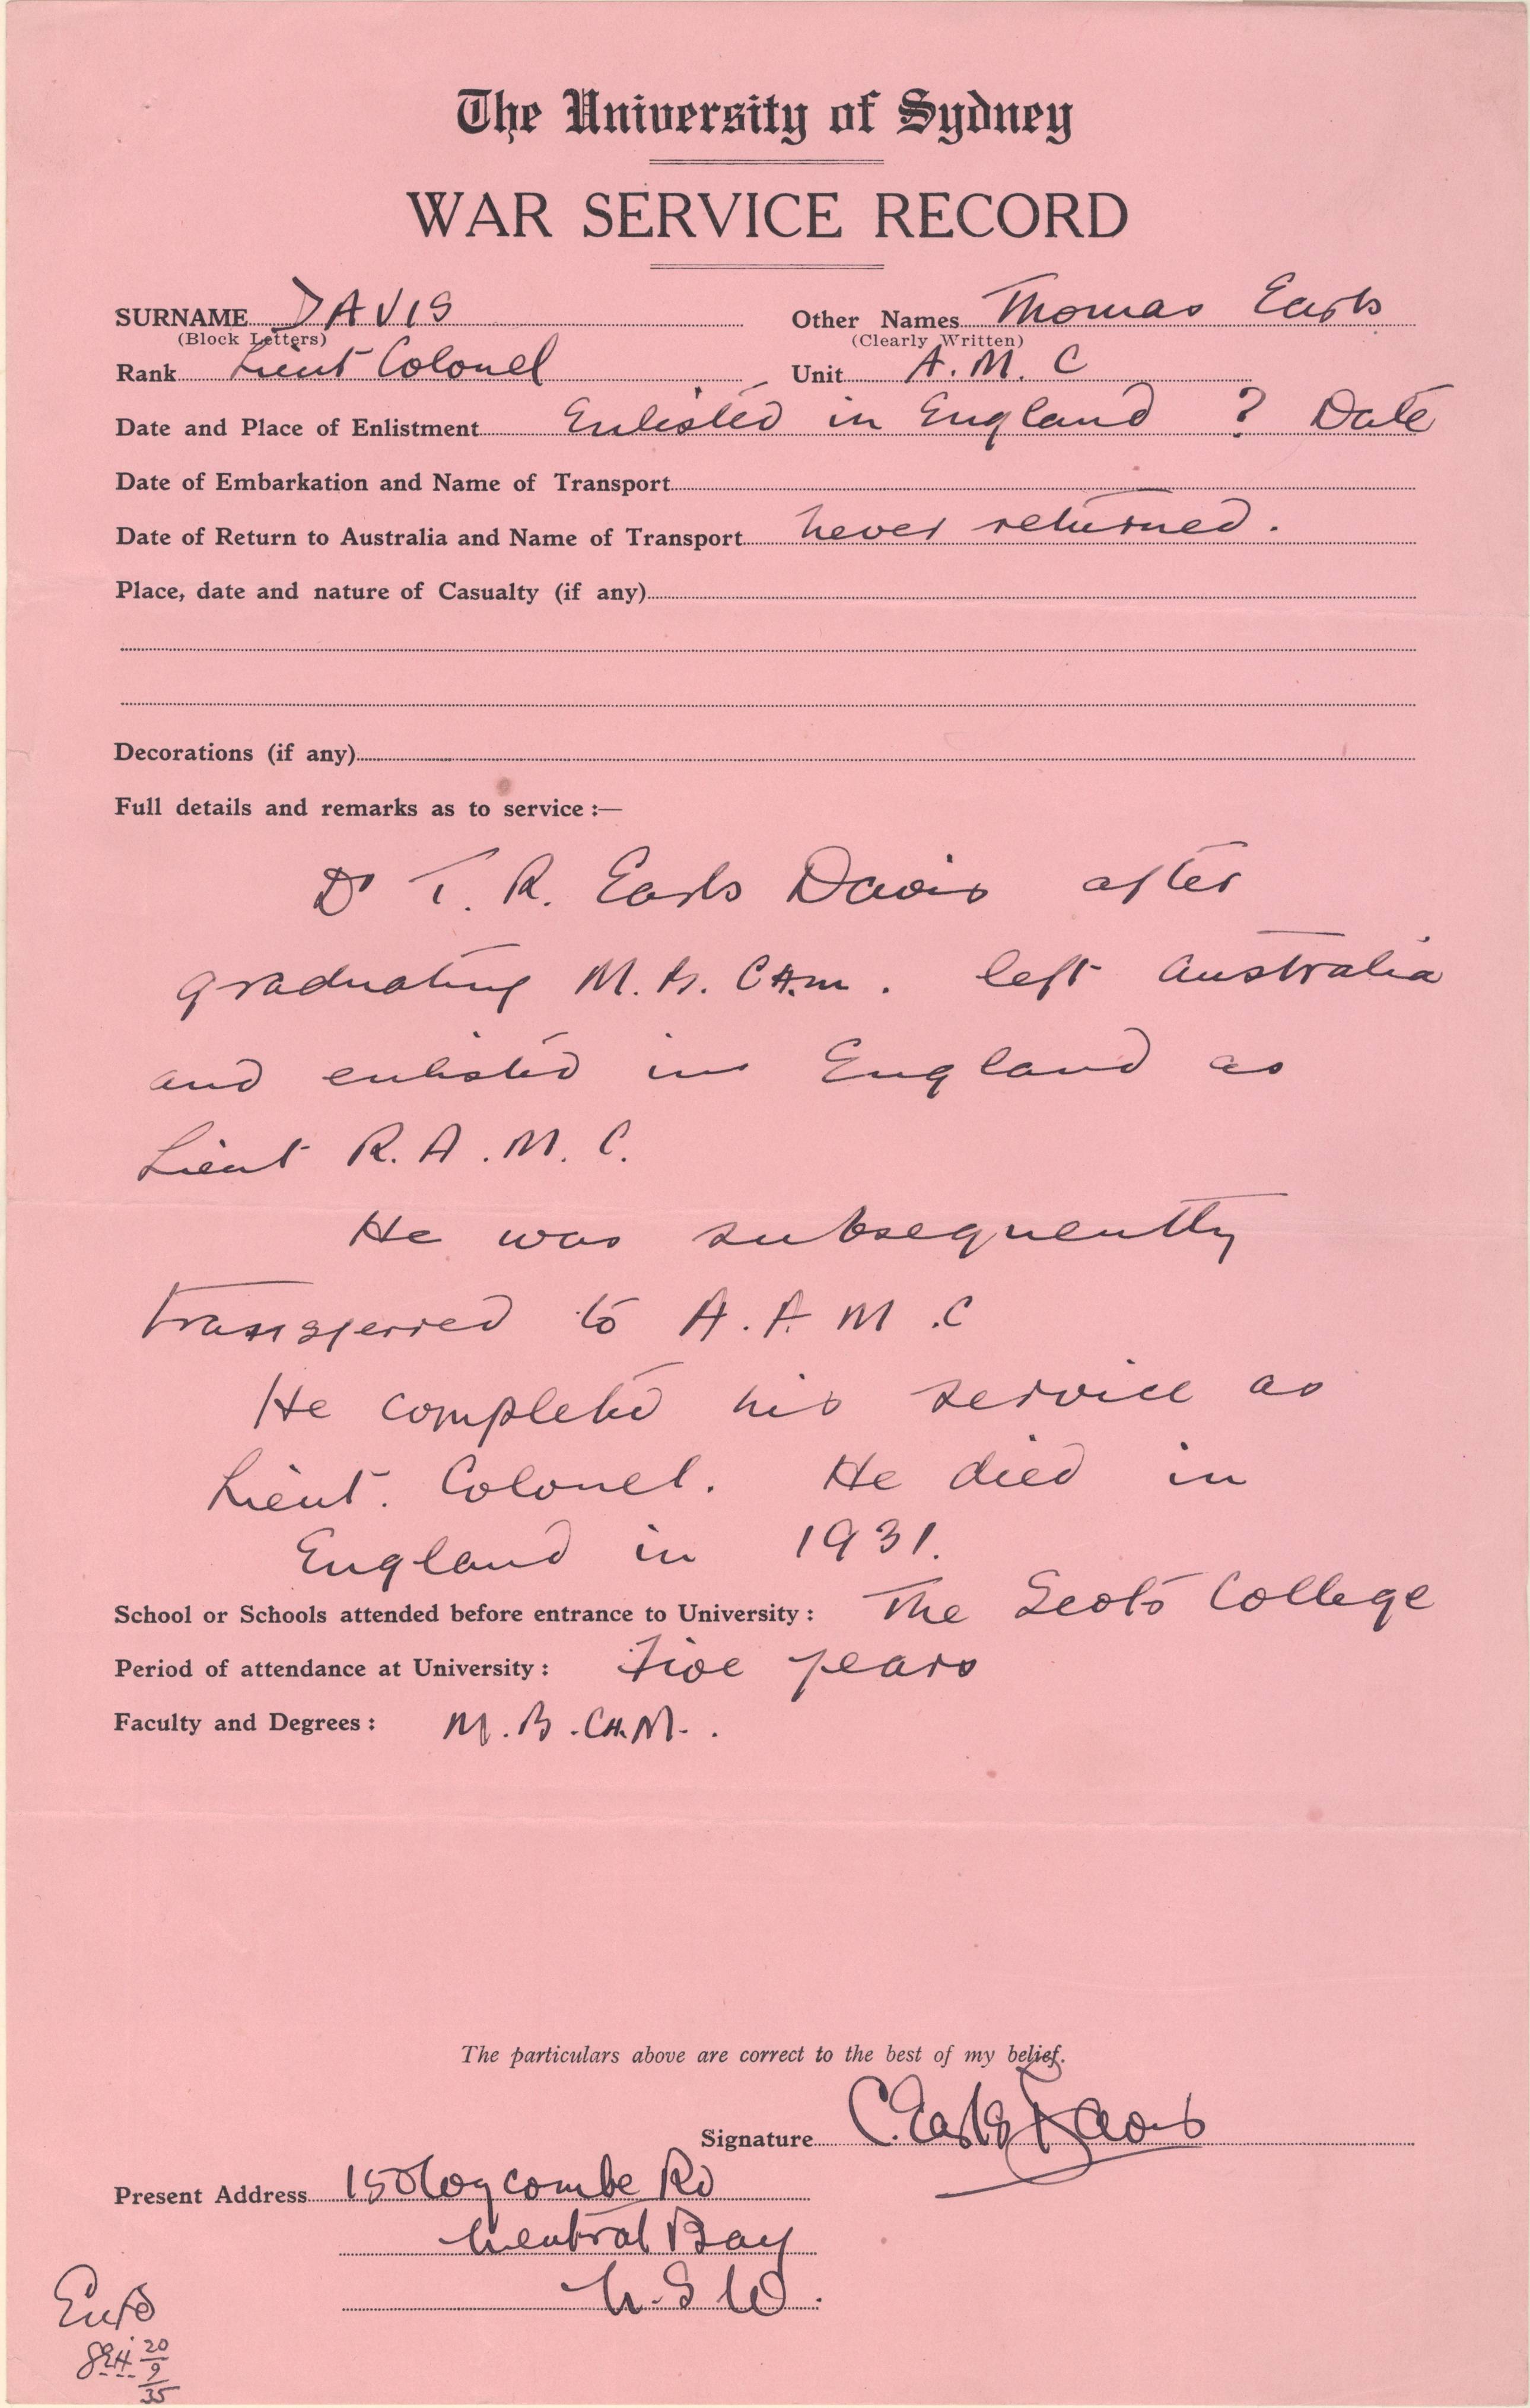 The University of Sydney
WAR SERVICE RECORD
SURNAME DAVIS Other Names Thomas Earls
(Block Letters) (Clearly Written)
Rank Lieut Colonel Unit A.M.C
Date and Place of Enlistment Enlisted in England ? Date
Date of Embarkation and Name of Transport
Date of Return to Australia and Name of Transport never returned.
Place, date and nature of Casualty (if any)
Decorations (if any)
Full details and remarks as to service :—
Dr T. R. Earls Davis after
graduating M.B. CH.m. left Australia
and enlisted in England as
Lieut R.A.M.C.
He was subsequently
transferred to A.A.M.C
He completed his service as
Lieut. Colonel. He died in
England in 1931.
School or Schools attended before entrance to University : The Scots College
Period of attendance at University : Five years
Faculty and Degrees : M.B.CH.M..
The particulars above are correct to the best of my belief.
Signature C. Earls Davis
Present Address Wycombe Rd
Neutral Bay
N.S.W.
20
9
35